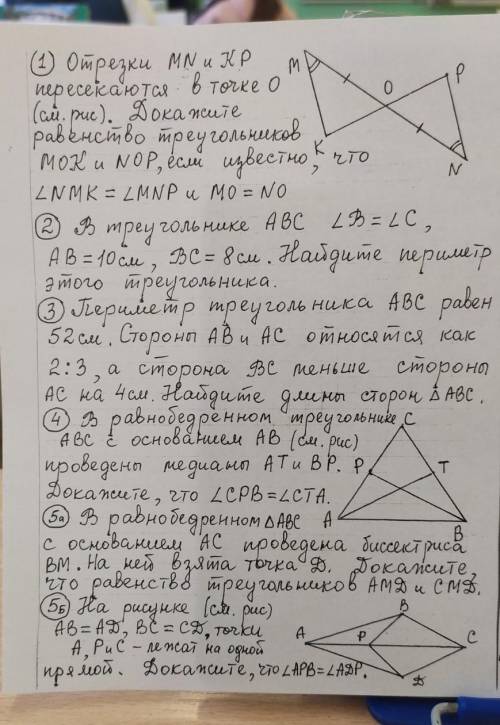 ① Отрезки MN и KP
пересекаются в точке O
(см. рис). Докажите
равенство треугольников
MOK и NOP, если известно, что
∠NMK = ∠MNP и MO = NO
② В треугольнике ABC ∠B = ∠C,
AB = 10 см, BC = 8 см. Найдите периметр
этого треугольника.
③ Периметр треугольника ABC равен
52 см. Стороны AB и AC относятся как
2:3, а сторона BC меньше стороны
AC на 4 см. Найдите длины сторон △ABC.
④ В равнобедренном треугольнике
ABC с основанием AB (см. рис)
проведены медианы AT и BP.
Докажите, что ∠CPB = ∠CTA.
5а В равнобедренном △ABC
с основанием AC проведена биссектриса
BM. На ней взята точка D. Докажите,
что равенство треугольников AMD и CMD.
5Б На рисунке (см. рис)
AB = AD, BC = CD, точки
A, P и C - лежат на одной
прямой. Докажите, что ∠APB = ∠ADP.
M
O
P
K
N
C
P
T
A
B
B
A
P
C
D